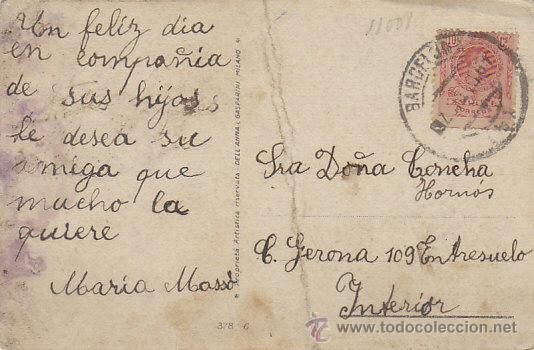 Un feliz dia
en compañia
de sus hijos
le desea su
amiga que
mucho la
quiere
Maria Massó
378 - 6
Proprietà Artistica riservata - DELL'ANNA & GASPARINI - MILANO
11001
BARCELONA
Sra Doña Concha
Hornós
C. Gerona 109 Entresuelo
Interior
todocoleccion
www.todocoleccion.net